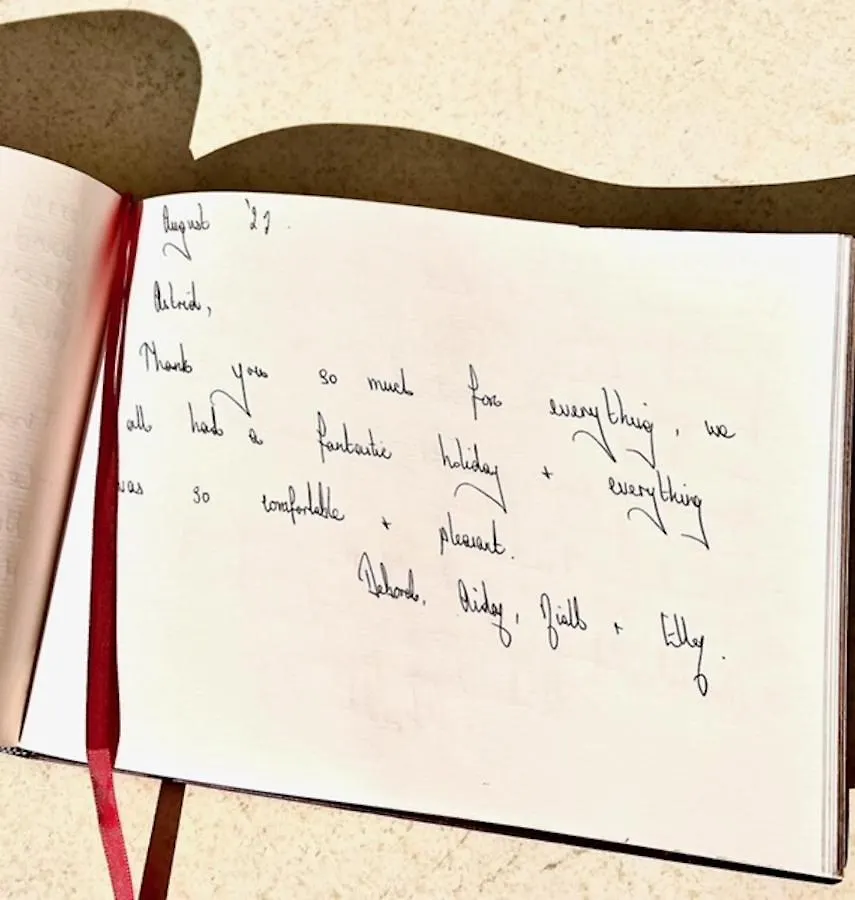 August '21.
Astrid,
Thank you so much for everything, we
all had a fantastic holiday + everything
was so comfortable + pleasant.
Deborah, + Elley.